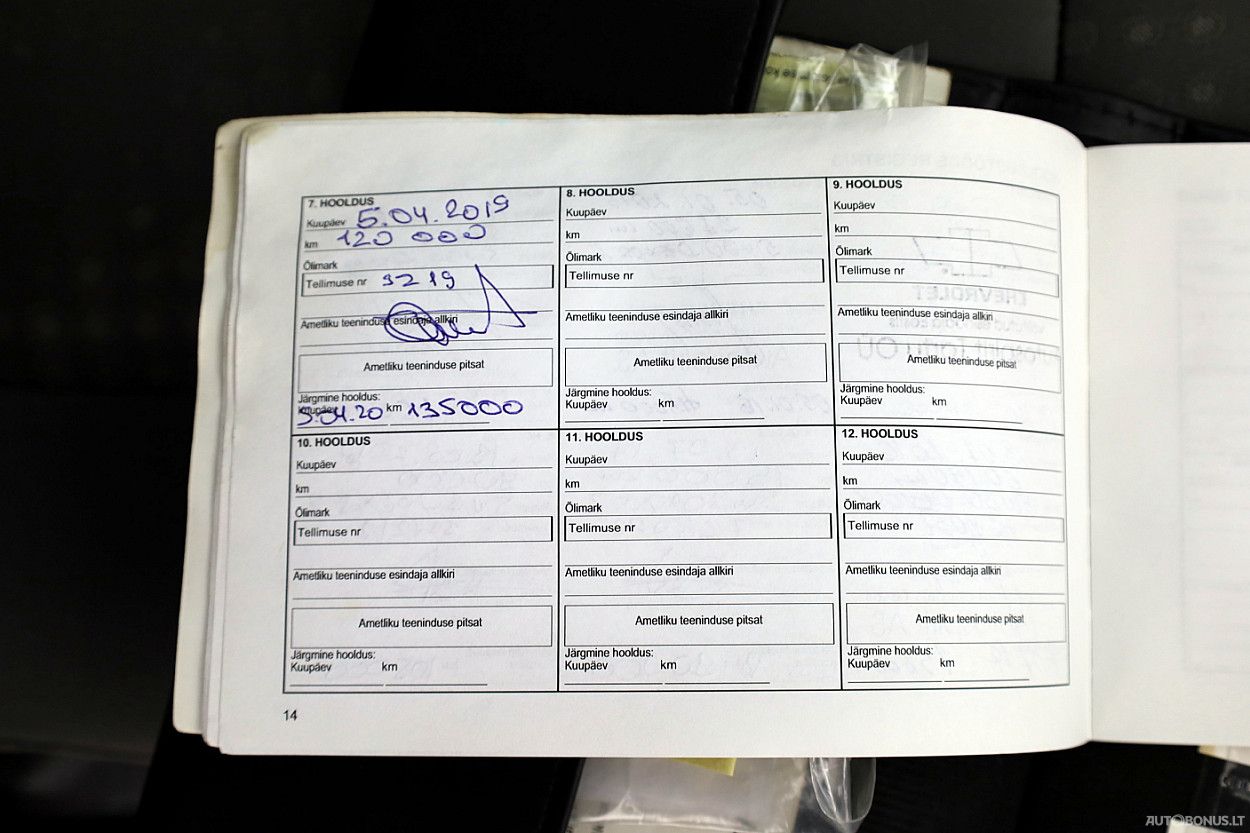 7. HOOLDUS
Kuupäev 5.04.2019
km 120 000
Õlimark
Tellimuse nr 3219
Ametliku teeninduse esindaja allkiri
Ametliku teeninduse pitsat
Järgmine hooldus:
Kuupäev 5.04.20 km 135000
8. HOOLDUS
Kuupäev
km
Õlimark
Tellimuse nr
Ametliku teeninduse esindaja allkiri
Ametliku teeninduse pitsat
Järgmine hooldus:
Kuupäev km
9. HOOLDUS
Kuupäev
km
Õlimark
Tellimuse nr
Ametliku teeninduse esindaja allkiri
Ametliku teeninduse pitsat
Järgmine hooldus:
Kuupäev km
10. HOOLDUS
Kuupäev
km
Õlimark
Tellimuse nr
Ametliku teeninduse esindaja allkiri
Ametliku teeninduse pitsat
Järgmine hooldus:
Kuupäev km
11. HOOLDUS
Kuupäev
km
Õlimark
Tellimuse nr
Ametliku teeninduse esindaja allkiri
Ametliku teeninduse pitsat
Järgmine hooldus:
Kuupäev km
12. HOOLDUS
Kuupäev
km
Õlimark
Tellimuse nr
Ametliku teeninduse esindaja allkiri
Ametliku teeninduse pitsat
Järgmine hooldus:
Kuupäev km
14
AUTOBONUS.LT